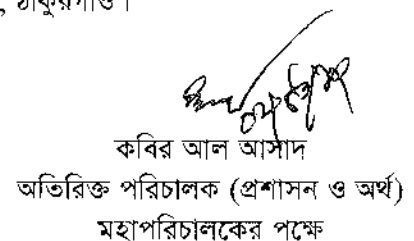 , ঠাকুরগাঁও।
কবির আল আসাদ
অতিরিক্ত পরিচালক (প্রশাসন ও অর্থ)
মহাপরিচালকের পক্ষে